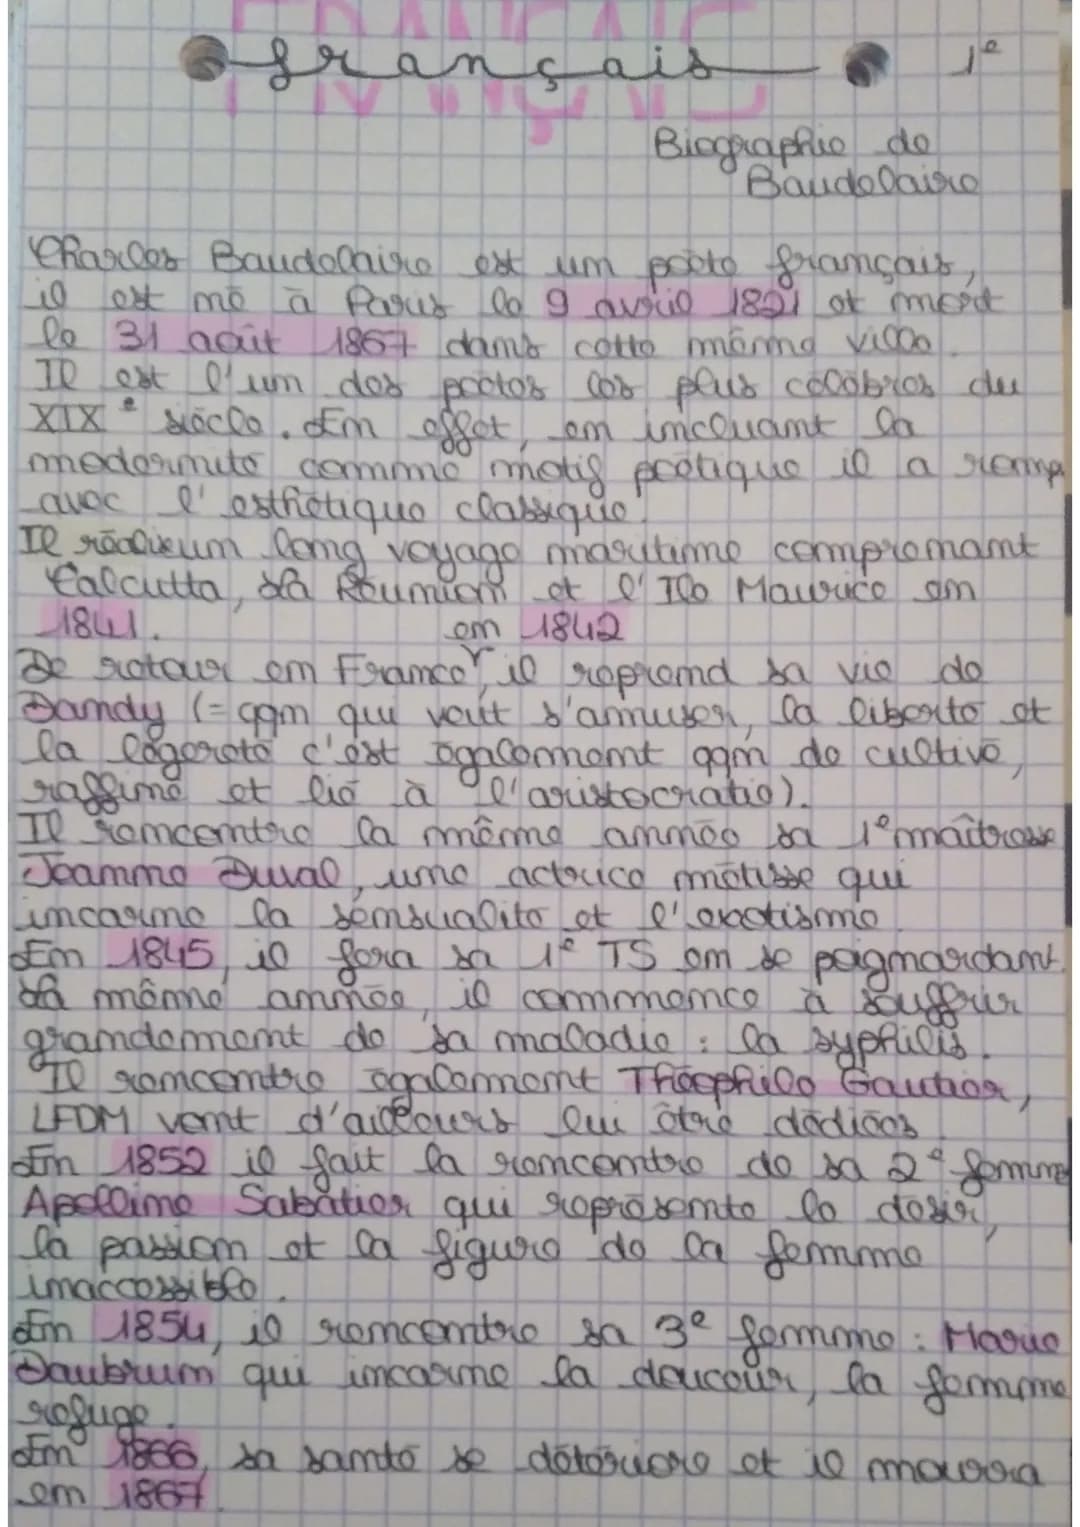 FRANÇAIS
français 1e
Biographie de
Baudelaire
Charles Baudelaire est un poète français,
il est né à Paris le 9 avril 1821 et mort
le 31 août 1867 dans cette même ville.
Il est l'un des poètes les plus célèbres du
XIXe siècle. En effet, en incluant la
modernité comme motif poétique il a rompu
avec l'esthétique classique.
Il réalise un long voyage maritime comprenant
Calcutta, La Réunion et l'Ile Maurice en
1841. en 1842
De retour en France, il reprend sa vie de
Dandy (= qqn qui veut s'amuser, la liberté et
la légereté c'est également qqn de cultivé,
raffiné et lié à l'aristocratie).
Il rencontre la même année sa 1e maîtresse
Jeanne Duval, une actrice métisse qui
incarne la sensualité et l'exotisme.
En 1845, il fera sa 1e TS en se poignardant.
La même année, il commence à souffrir
grandement de sa maladie : la syphilis.
Il rencontre également Théophile Gautier,
LFDM vont d'ailleurs lui être dédiées
En 1852 il fait la rencontre de sa 2e femme
Apolline Sabatier qui représente le désir,
la passion et la figure de la femme
inaccessible.
En 1854, il rencontre sa 3e femme : Marie
Daubrun qui incarne la douceur, la femme
refuge.
En 1866, sa santé se détériore et il mourra
en 1867.